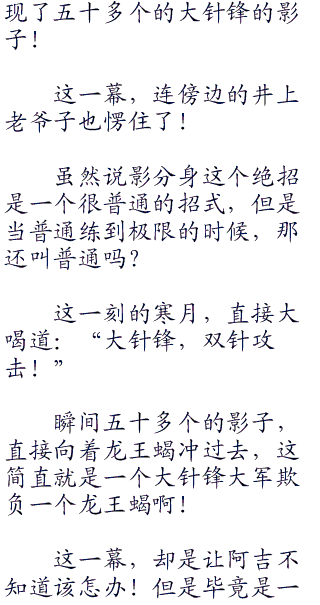 现了五十多个的大针锋的影
子！
这一幕，连傍边的井上
老爷子也愣住了！
虽然说影分身这个绝招
是一个很普通的招式，但是
当普通练到极限的时候，那
还叫普通吗？
这一刻的寒月，直接大
喝道：“大针锋，双针攻
击！”
瞬间五十多个的影子，
直接向着龙王蝎冲过去，这
简直就是一个大针锋大军欺
负一个龙王蝎啊！
这一幕，却是让阿吉不
知道该怎办！但是毕竟是一